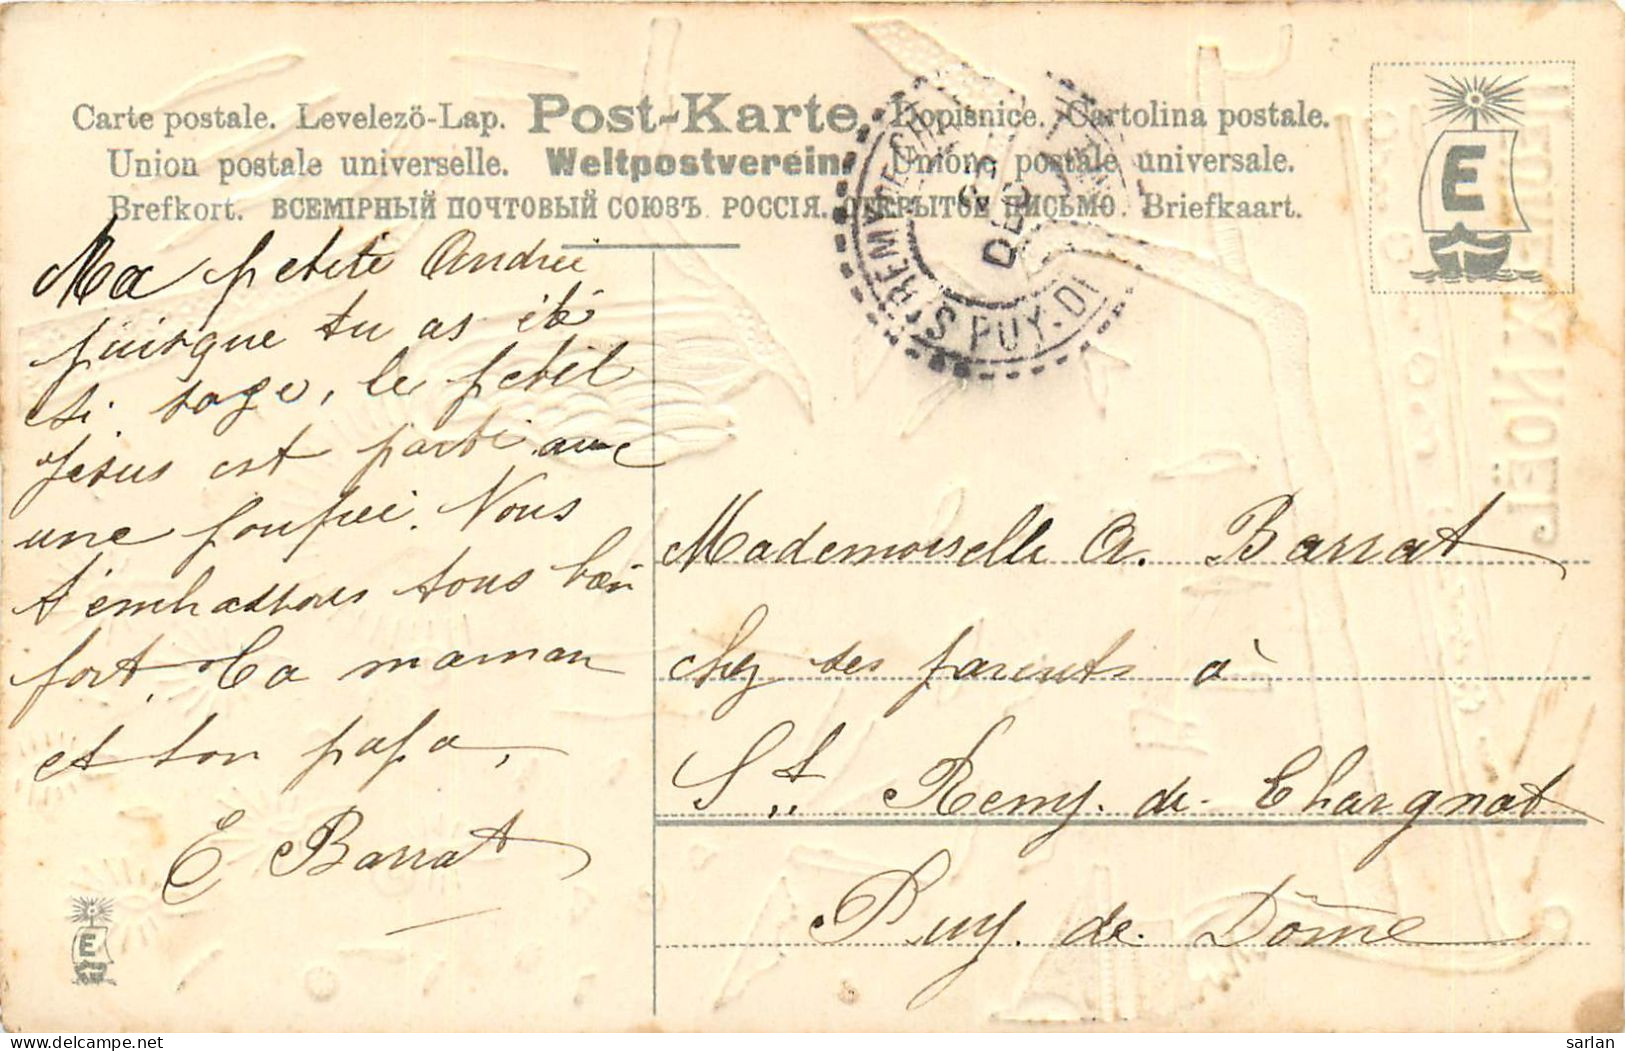 Carte postale. Levelezö-Lap. Post-Karte. Dopisnice. Cartolina postale.
Union postale universelle. Weltpostverein. Unione postale universale.
Brefkort. ВСЕМІРНЫЙ ПОЧТОВЫЙ СОЮЗЪ. РОССІЯ. ОТКРЫТОЕ ПИСЬМО. Briefkaart.
E
DEC
PUY-D
Ma petite Andrée
puisque tu as été
si sage, le petit
Jésus est parti avec
une poupée. Nous
t'embrassons tous bien
fort. Ta maman
et ton papa,
E Barrat
Mademoiselle A. Barrat
chez ses parents à
St Remy. de. Chargnat
Puy. de. Dôme
E
JOYEUX NOËL
sarlan